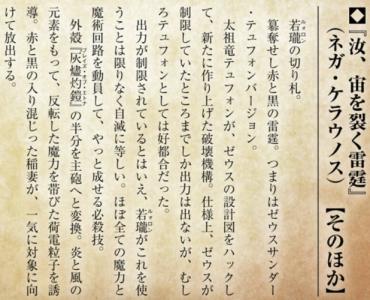 ◆『汝、宙を裂く雷霆』
(ネガ・ケラウノス)
【そのほか】
若瓏の切り札。
簒奪せし赤と黒の雷霆。つまりはゼウスサンダー
・テュフォンバージョン。
太祖竜テュフォンが、ゼウスの設計図をハックし
て、新たに作り上げた破壊機構。仕様上、ゼウスが
制限していたところまでしか出力は出ないが、むし
ろテュフォンとしては好都合だった。
出力が制限されているとはいえ、若瓏がこれを使
うことは限りなく自滅に等しい。ほぼ全ての魔力と
魔術回路を動員して、やっと成せる必殺技。
外殻『灰燼灼鎧』の半分を主砲へと変換。炎と風の
元素をもって、反転した魔力を帯びた荷電粒子を誘
導。赤と黒の入り混じった稲妻が、一気に対象に向
けて放出する。